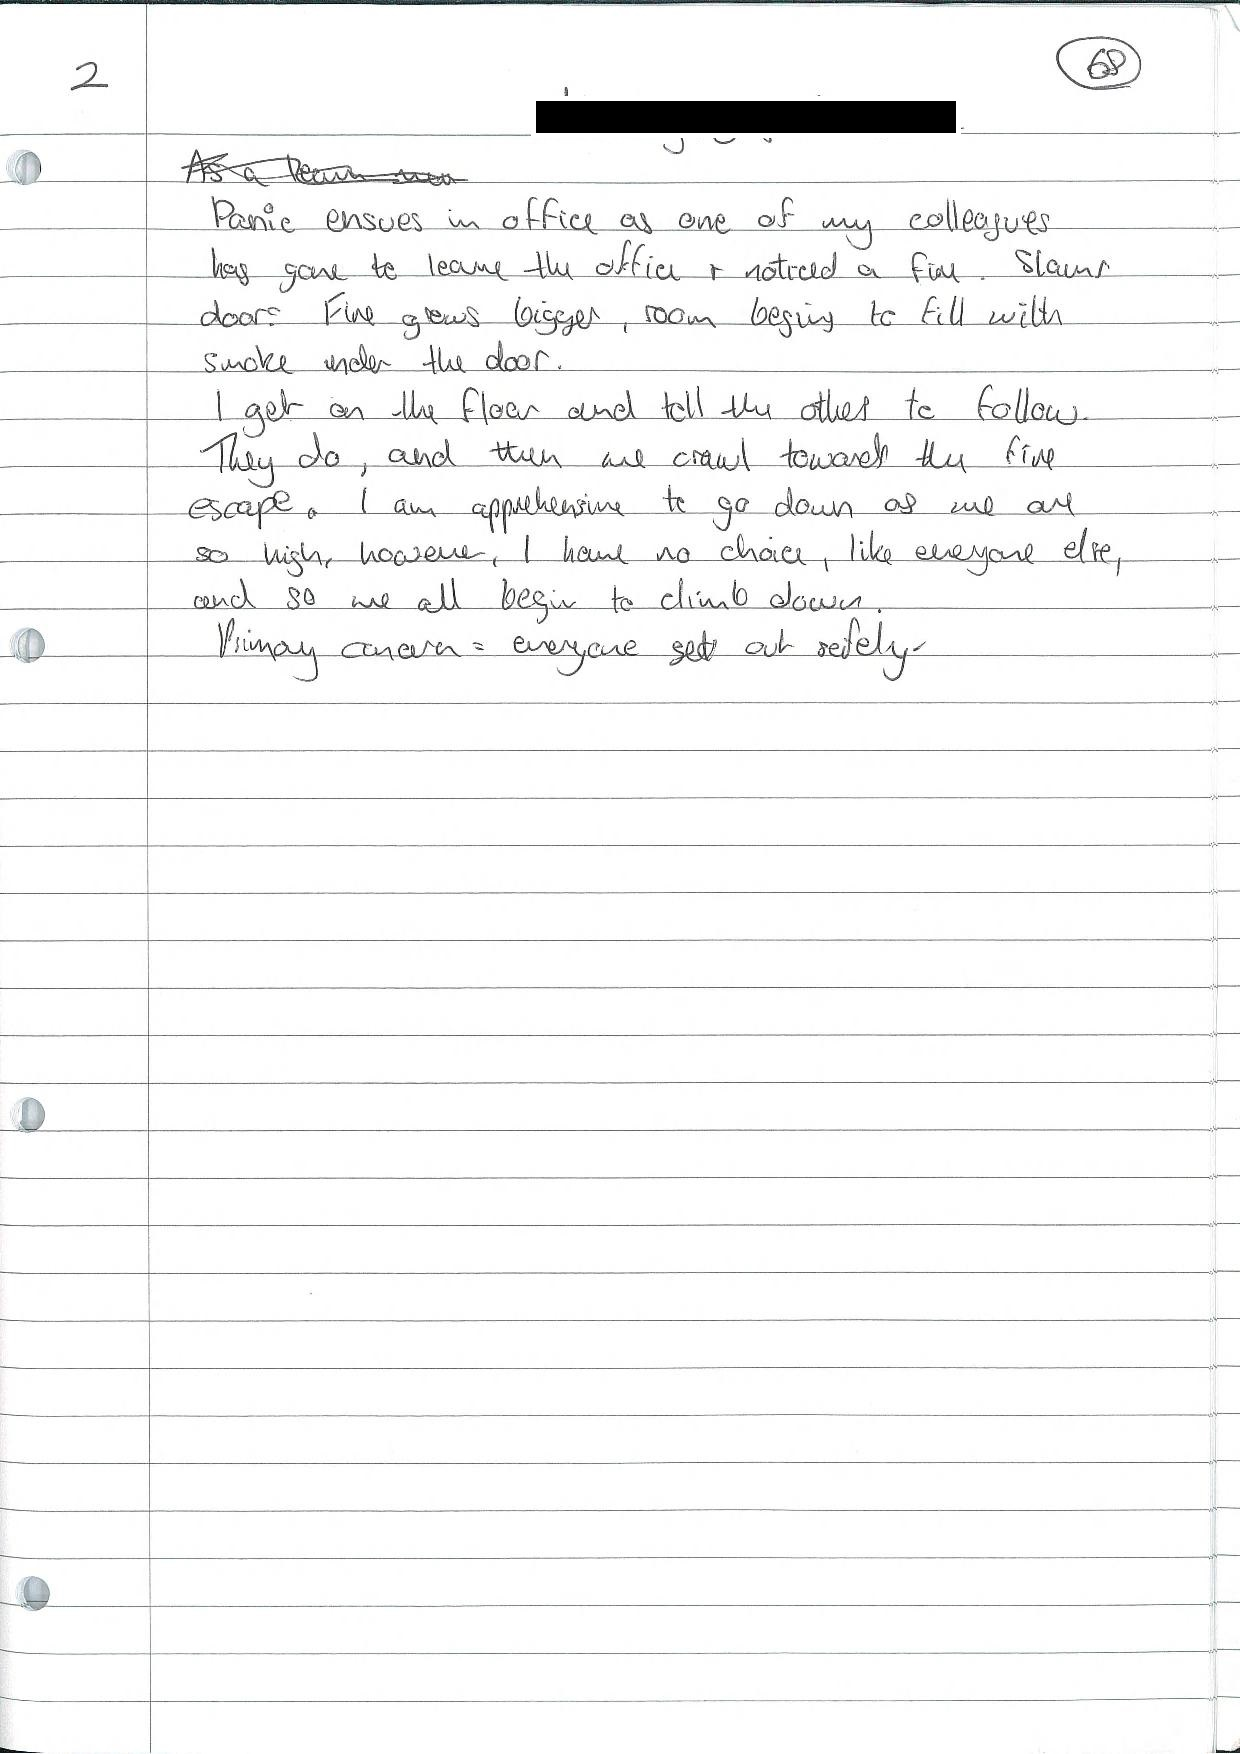 2
68
As a team
Panic ensues in office as one of my colleagues
has gone to leave the office + noticed a fire. Slams
door. Fire grows bigger, room begins to fill with
smoke under the door.
I get on the floor and tell the others to follow.
They do, and then we crawl towards the fire
escape. I am apprehensive to go down as we are
so high, however, I have no choice, like everyone else,
and so we all begin to climb down.
Primary concern = everyone get out safely.